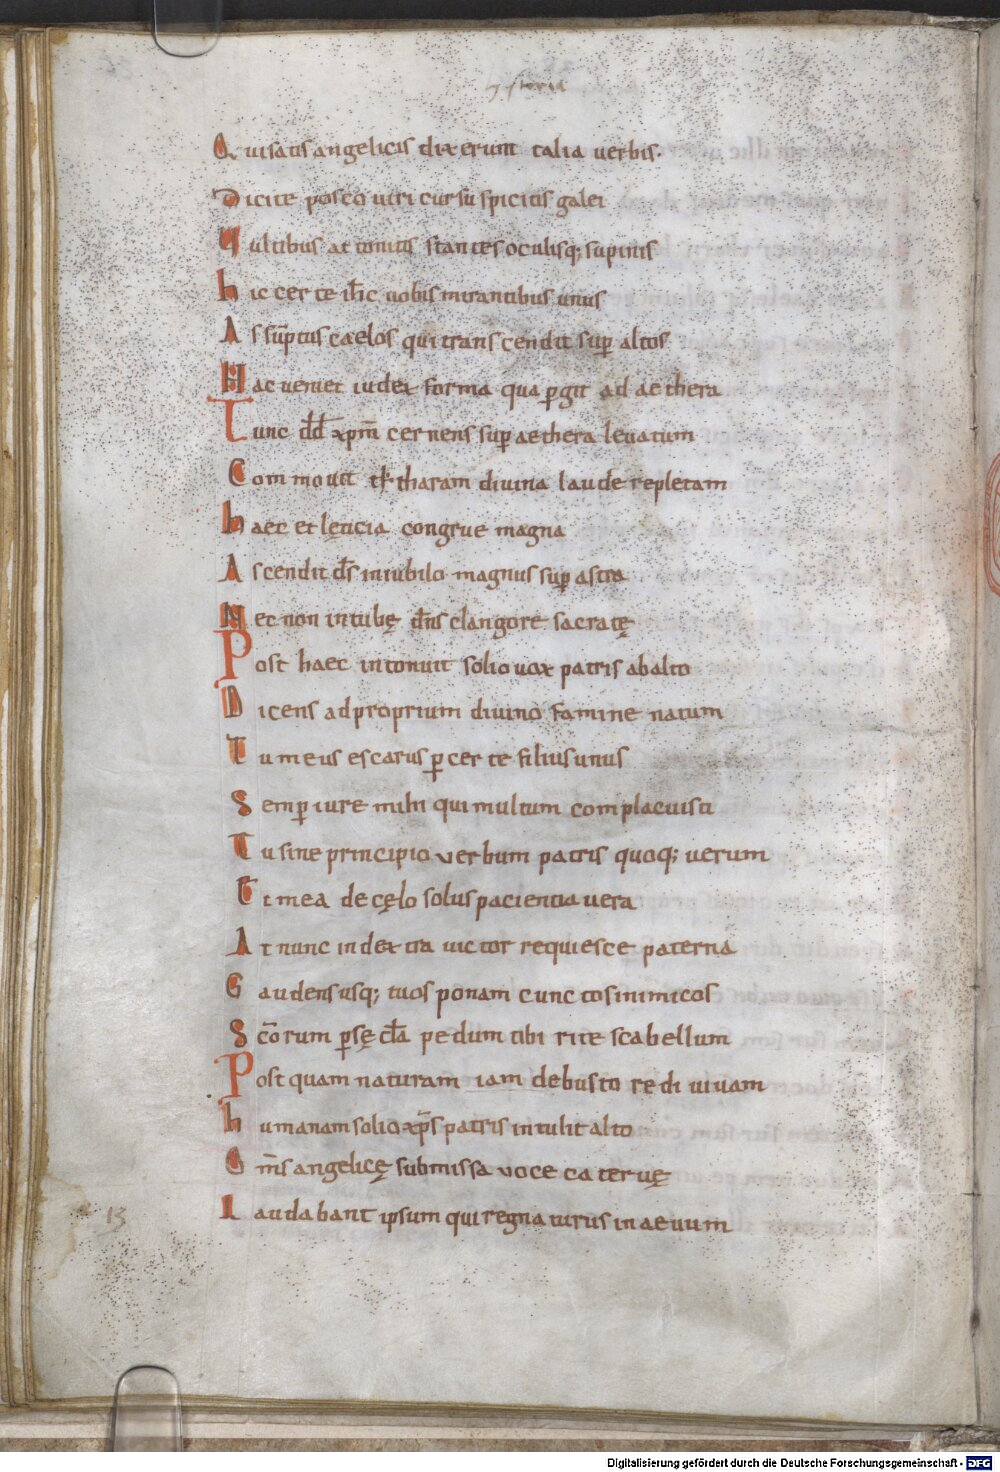 ystoria
Quisatis angelicis dixerunt talia uerbis.
Dicite posco uiri cur suspicitis galei
Cultibus attonitis stantes oculisq; supinis
hic certe ih̅c uobis mirantibus unus
Assu̅ptus caelos qui transcendit sup̱ altos
Hac ueniet iudex forma qua p̱git ad aethera
Tunc dd̅ xp̅m cernens sup̱ aethera leuatum
Commouit cẏtharam diuina laude repletam
haec et lęticia congrue magna
Ascendit d̅s in iubilo magnus sup̱ astra
Nec non in tubę d̅ns clangore sacratę
Post haec intonuit solio uox patris ab alto
Dicens ad proprium diuino famine natum
Tu meus es carus p̱ certe filius unus
Semp̱ iure mihi qui multum complacuisti
Tu sine principio uerbum patris quoq; uerum
Et mea de cęlo solus paciencia uera
At nunc in dextra uictor requiesce paterna
Gaudens usq; tuos ponam cunctos inimicos
Sc̅orum p̱ sęc̅la pedum tibi rite scabellum
Postquam naturam iam de busto rediuiuam
humanam solio xp̅s patris intulit alto
Om̅s angelicę submissa uoce cateruę
Laudabant ipsum qui regnaturus in aeuum
13
Digitalisierung gefördert durch die Deutsche Forschungsgemeinschaft - DFG